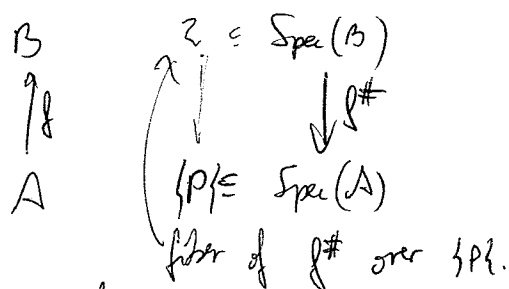 B ? ⊆ Spec(B)
↑f ↓ ↓ f^#
A {P} ⊆ Spec(A)
fiber of f^# over {P}.